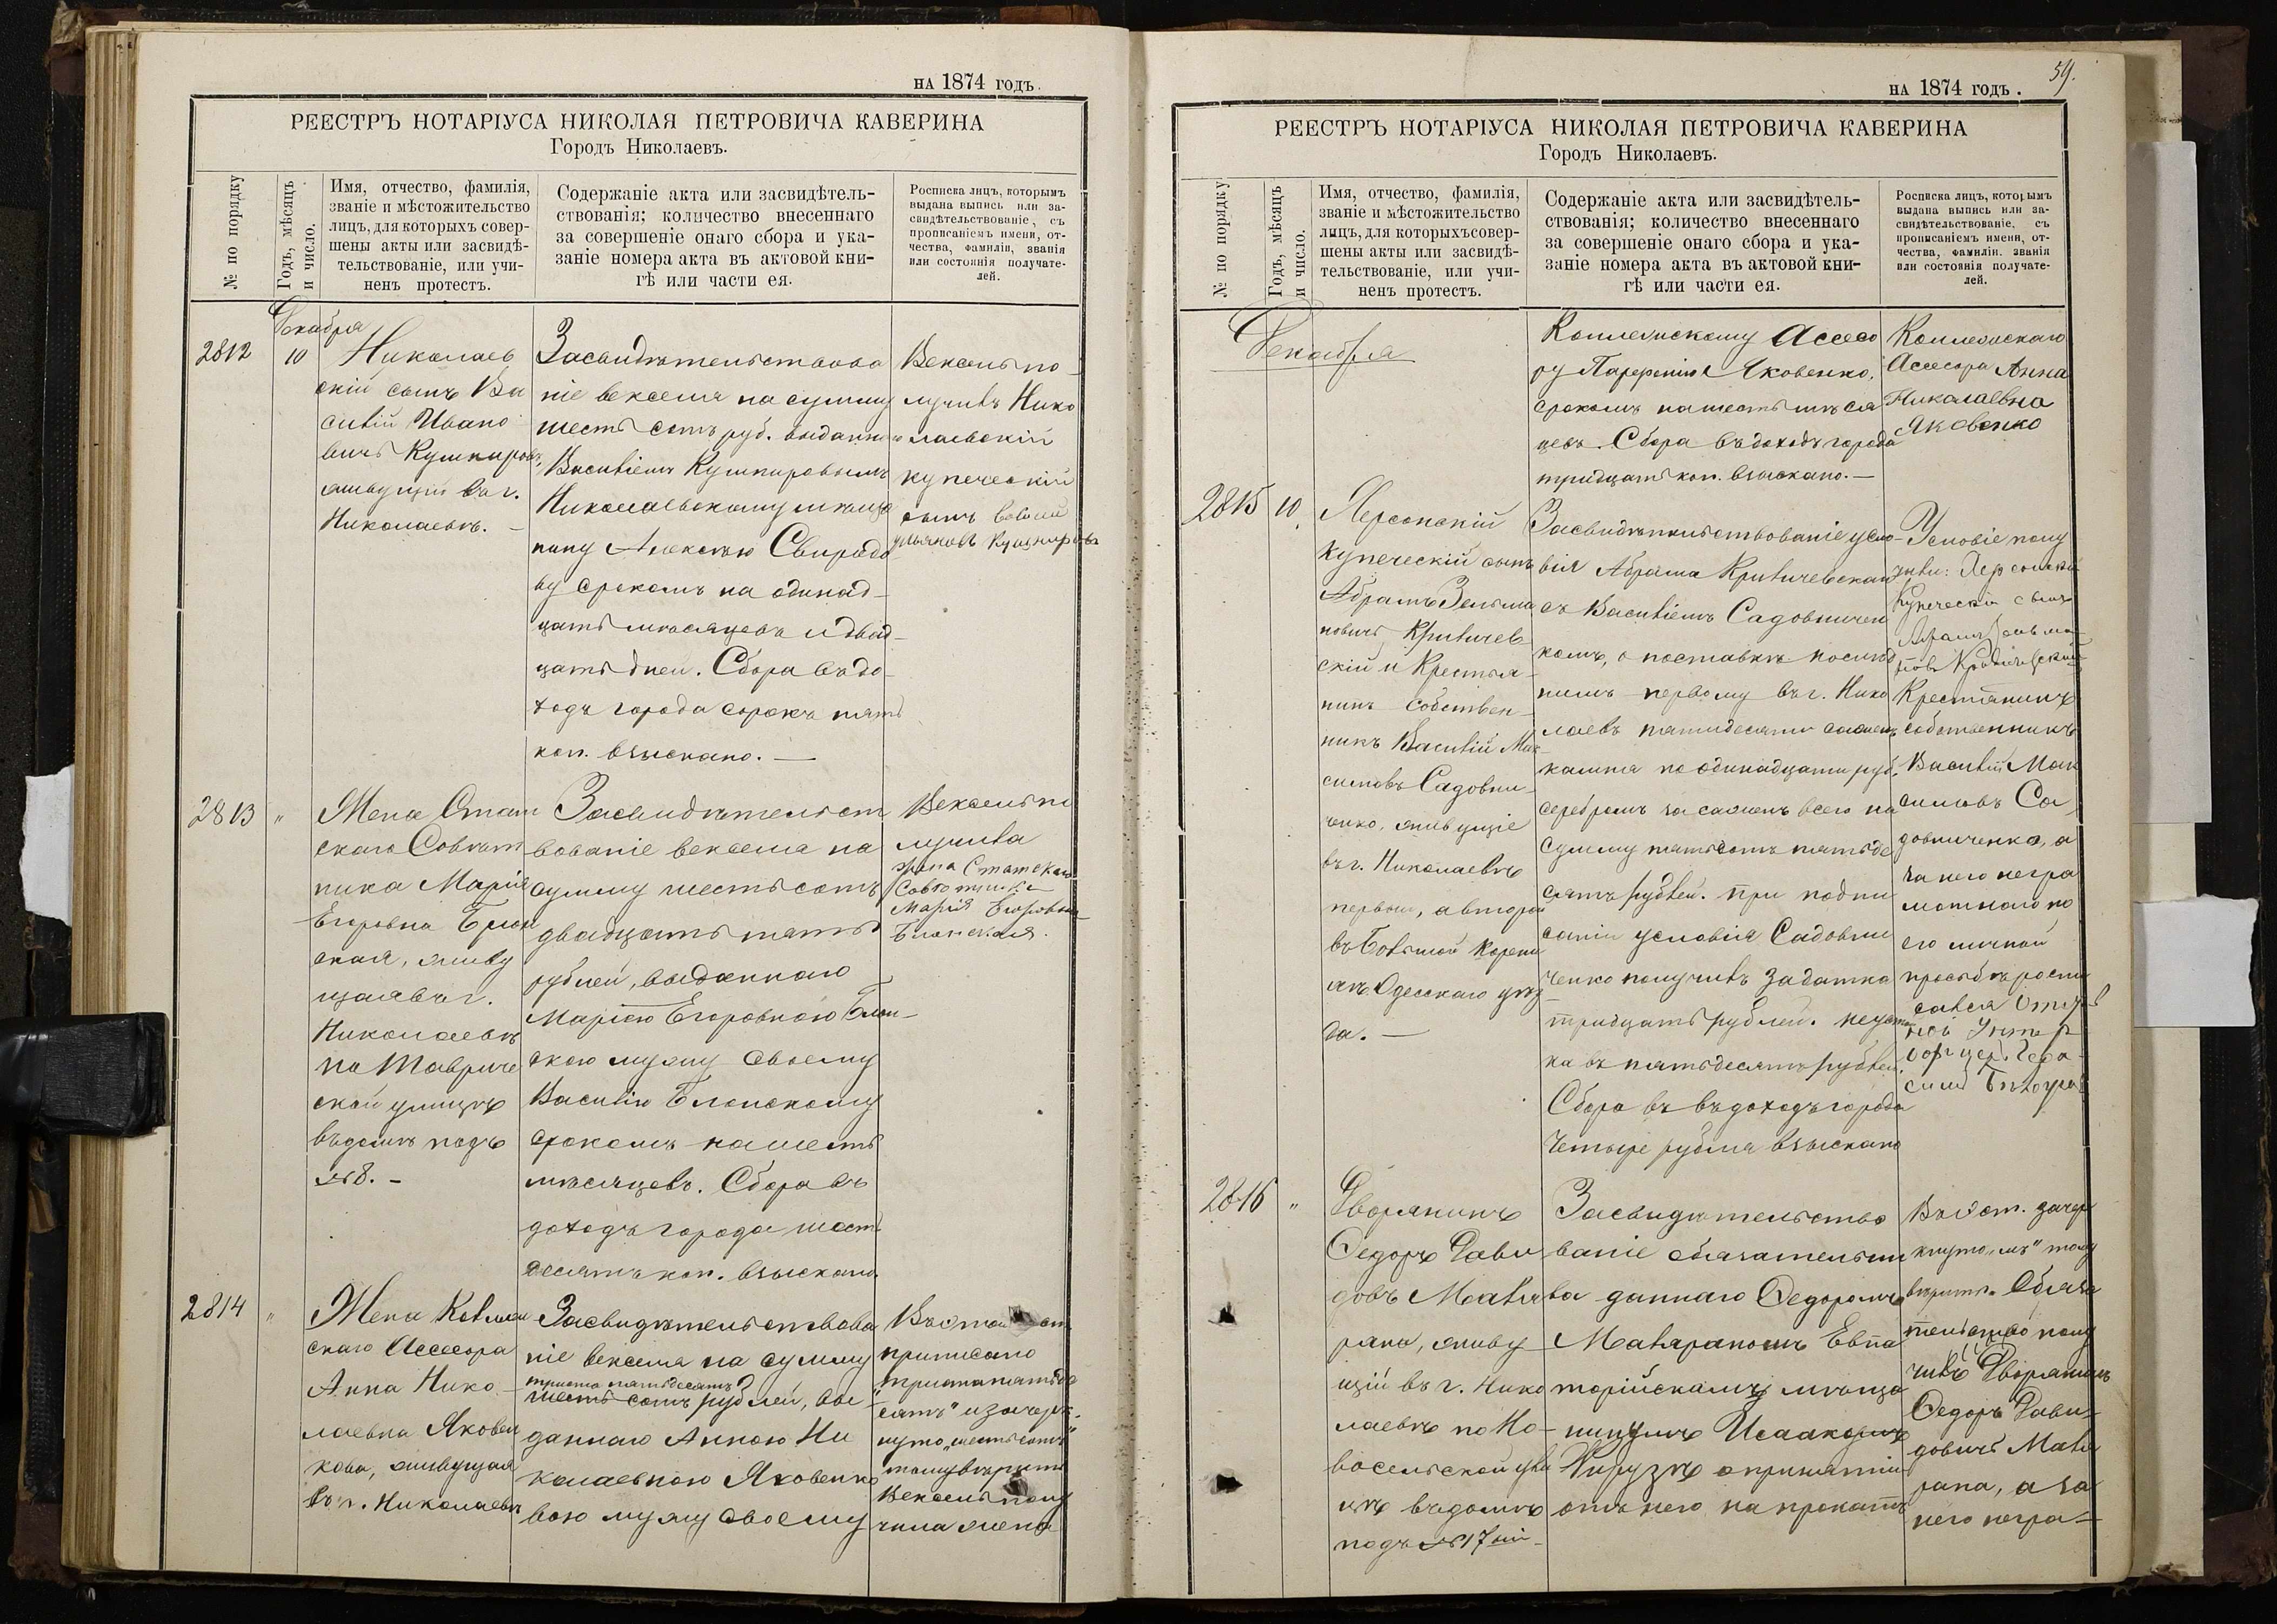 на 1874 годъ.
РЕЕСТРЪ НОТАРІУСА НИКОЛАЯ ПЕТРОВИЧА КАВЕРИНА
Городъ Николаевъ.
№ по порядку
Годъ, мѣсяцъ
и число.
Имя, отчество, фамилія,
званіе и мѣстожительство
лицъ, для которыхъ совер-
шены акты или засвидѣ-
тельствованіе, или учи-
ненъ протестъ.
Содержаніе акта или засвидѣтель-
ствованія; количество внесеннаго
за совершеніе онаго сбора и ука-
заніе номера акта въ актовой кни-
гѣ или части ея.
Росписка лицъ, которымъ
выдана выпись или за-
свидѣтельствованіе, съ
прописаніемъ имени, от-
чества, фамиліи, званія
или состоянія получате-
лей.
Декабря
2812
10
Николаев
скій сынъ Ва
силій Ивано
вичъ Кушнировъ,
живущій въ г.
Николаевѣ. -
Засвидѣтельствова
ніе векселя на сумму
шесть сотъ руб. выданнаго
Василіемъ Кушнировымъ
Николаевскому мѣща
нину Алексѣю Свиридо
ву срокомъ на одинад-
цать мѣсяцевъ и двад-
цать дней. Сбора въ до-
ходъ города сорокъ пять
коп. взыскано. —
Вексель по-
лучилъ Нико
лаевскій
купеческій
сынъ
Кушниров
2813
"
Жена Стат
скаго Совѣт
ника Марія
Егоровна Блон
ская, живу
щая въ г.
Николаевѣ
по Тавриче
ской улицѣ
въ домѣ подъ
№ 8. -
Засвидѣтельст
вованіе векселя на
сумму шесть сотъ
двадцать пять
рублей, выданнаго
Маріею Егоровною Блон-
скою мужу своему
Василію Блонскому
срокомъ на шесть
мѣсяцевъ. Сбора въ
доходъ города шесть
десятъ коп. взыскано.
Вексель по
лучила
жена Статскаго
Совѣтника
Марія Егоровна
Блонская.
2814
"
Жена Коллеж
скаго Ассесора
Анна Нико-
лаевна Яковен
кова, живущая
въ г. Николаевѣ
Засвидѣтельствова
ніе векселя на сумму
триста пятьдесятъ
шесть сотъ рублей, вы-
даннаго Анною Ни
колаевною Яковенко
вою мужу своему
Въ этой ст
приписано
"триста пятьде
сятъ" и зачерк-
нуто "шесть сотъ"
тому вѣрить
Вексель полу
чила жена
59.
на 1874 годъ.
РЕЕСТРЪ НОТАРІУСА НИКОЛАЯ ПЕТРОВИЧА КАВЕРИНА
Городъ Николаевъ.
№ по порядку
Годъ, мѣсяцъ
и число.
Имя, отчество, фамилія,
званіе и мѣстожительство
лицъ, для которыхъ совер-
шены акты или засвидѣ-
тельствованіе, или учи-
ненъ протестъ.
Содержаніе акта или засвидѣтель-
ствованія; количество внесеннаго
за совершеніе онаго сбора и ука-
заніе номера акта въ актовой кни-
гѣ или части ея.
Росписка лицъ, которымъ
выдана выпись или за-
свидѣтельствованіе, съ
прописаніемъ имени, от-
чества, фамиліи, званія
или состоянія получате-
лей.
Декабря
Коллежскому Ассесо
ру Парфенію Яковенко,
срокомъ на шесть мѣся
цевъ. Сбора въ доходъ города
тридцать коп. взыскано. —
Коллежскаго
Ассесора Анна
Николаевна
Яковенко
2815
10
Херсонскій
купеческій сынъ
Абрамъ Зельма
новичъ Кривичев
скій и Крестья-
нинъ собствен-
никъ Василій Мак-
симовъ Садовни-
ченко, живущіе
въ г. Николаевѣ
первый, а второй
въ Большой Корени
хѣ Одесскаго уѣз
да. —
Засвидѣтельствованіе усло-
вія Абрама Кривичевскаго
съ Василіемъ Садовничен
комъ, о поставкѣ послѣд
нимъ первому въ г. Нико
лаевъ пятидесяти сажень
камня по одинадцати руб.
серебромъ за сажень всего на
сумму пятьсотъ пятьде
сятъ рублей. При подпи
саніи условія Садовни
ченко получилъ задатка
тридцать рублей. Неустой
ка въ пятьдесятъ рублей.
Сбора въ въ доходъ города
четыре рубля взыскано
Условіе полу
чили: Херсонскій
Купеческій сынъ
Абрамъ Зельма-
новъ Кривичевскій
Крестьянинъ
собственникъ
Василій Мак
симовъ Са
довниченко, а
за него негра
мотнаго по
его личной
просьбѣ роспи
сался Отст
ной Унтер
офицер Гера
симъ
2816
"
Дворянинъ
Федоръ Дави
довъ Мавля
рана, живу
щій въ г. Нико
лаевѣ по Но-
восельской ули
цѣ въ домѣ
подъ № 17мъ -
Засвидѣтельство
ваніе обязательст
ва даннаго Федоромъ
Мавляраномъ Евпа
торійскому мѣща
нину Исааку
о принятіи
отъ него на прокатъ
Въ э ст. зачер
кнуто "мъ" тому
вѣрить. Обяза
тельство полу
чилъ Дворянинъ
Федоръ Дави-
довичъ Мавля
рана, а за
него негра-